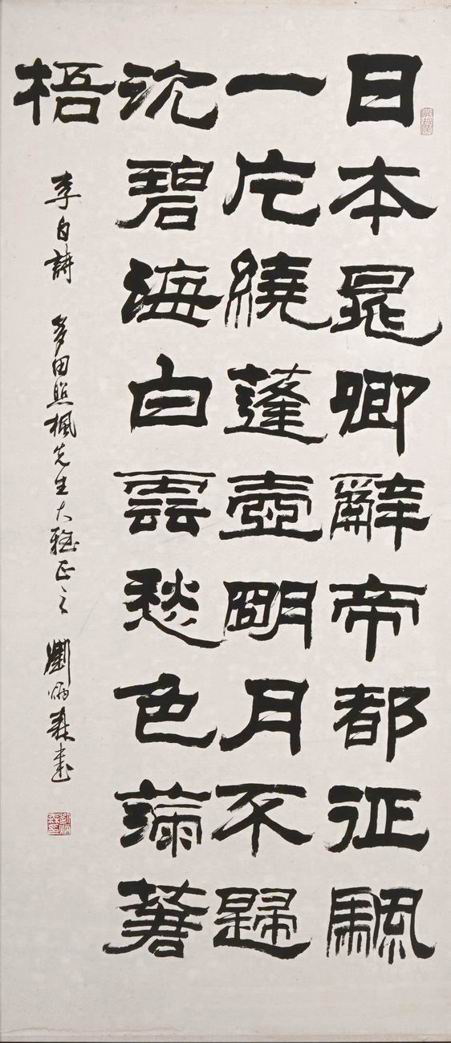 日本晁卿辭帝都征颿
一片繞蓬壺朙月不歸
沈碧海白雲愁色滿蒼
梧
李白詩 多田照楓先生大雅正之 劉炳森書